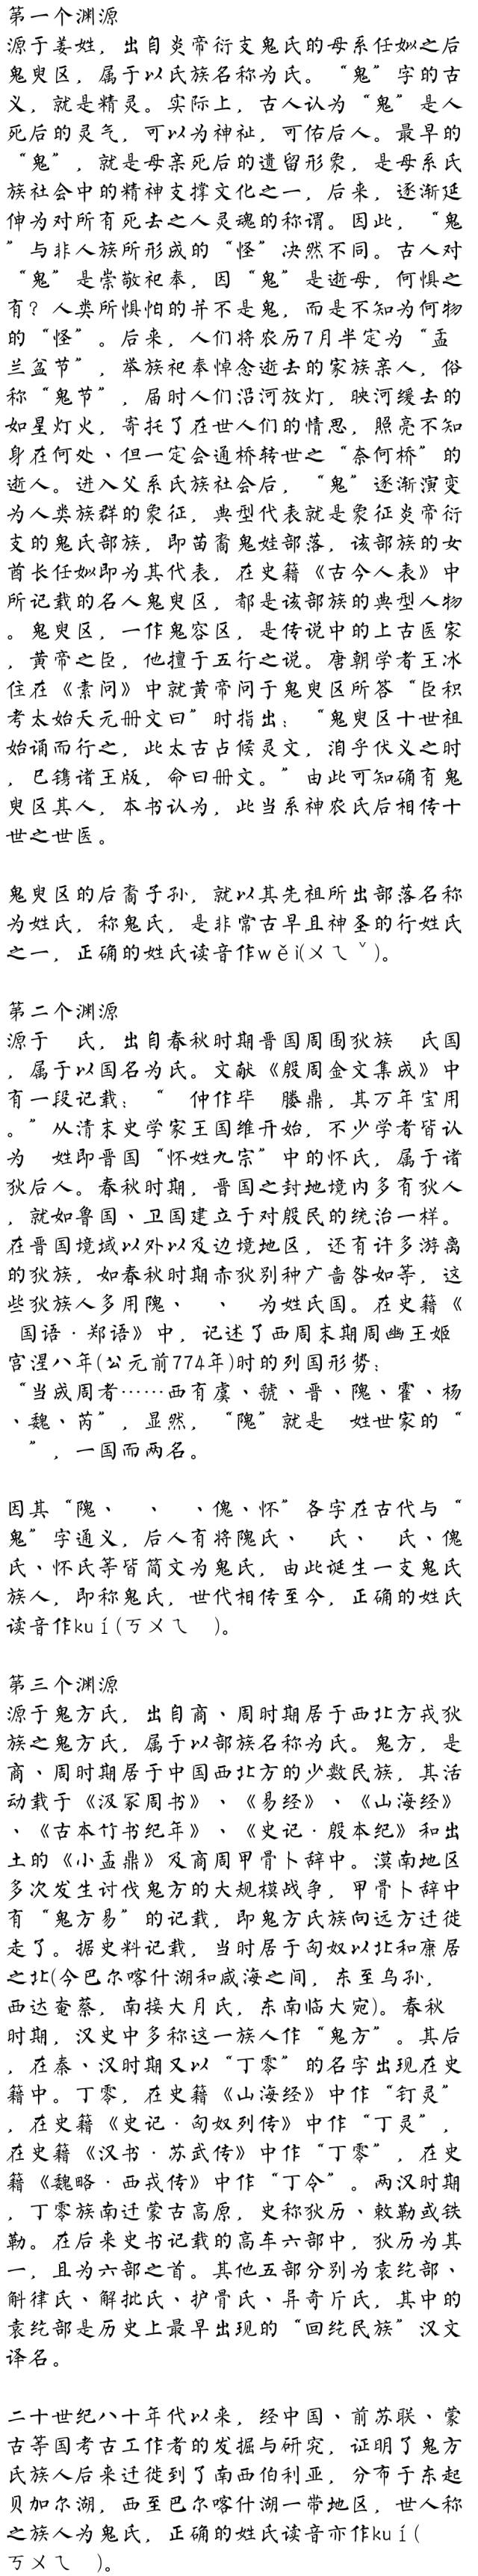 第一个渊源
源于姜姓，出自炎帝衍支鬼氏的母系任姒之后
鬼臾区，属于以氏族名称为氏。“鬼”字的古
义，就是精灵。实际上，古人认为“鬼”是人
死后的灵气，可以为神祉，可佑后人。最早的
“鬼”，就是母亲死后的遗留形象，是母系氏
族社会中的精神支撑文化之一，后来，逐渐延
伸为对所有死去之人灵魂的称谓。因此，“鬼
”与非人族所形成的“怪”决然不同。古人对
“鬼”是崇敬祀奉，因“鬼”是逝母，何惧之
有？人类所惧怕的并不是鬼，而是不知为何物
的“怪”。后来，人们将农历7月半定为“盂
兰盆节”，举族祀奉悼念逝去的家族亲人，俗
称“鬼节”，届时人们沿河放灯，映河缓去的
如星灯火，寄托了在世人们的情思，照亮不知
身在何处、但一定会通桥转世之“奈何桥”的
逝人。进入父系氏族社会后，“鬼”逐渐演变
为人类族群的象征，典型代表就是象征炎帝衍
支的鬼氏部族，即苗裔鬼姓部落，该部族的女
酋长任姒即为其代表，在史籍《古今人表》中
所记载的名人鬼臾区，都是该部族的典型人物
。鬼臾区，一作鬼容区，是传说中的上古医家
，黄帝之臣，他擅于五行之说。唐朝学者王冰
住在《素问》中就黄帝问于鬼臾区所答“臣积
考太始天元册文曰”时指出：“鬼臾区十世祖
始诵而行之，此太古占候灵文，洎乎伏义之时
，已镌诸王版，命曰册文。”由此可知确有鬼
臾区其人，本书认为，此当系神农氏后相传十
世之世医。

鬼臾区的后裔子孙，就以其先祖所出部落名称
为姓氏，称鬼氏，是非常古早且神圣的行姓氏
之一，正确的姓氏读音作wěi(ㄨㄟˇ)。

第二个渊源
源于　氏，出自春秋时期晋国周围狄族　氏国
，属于以国名为氏。文献《殷周金文集成》中
有一段记载：“　仲作毕　媵鼎，其万年宝用
。”从清末史学家王国维开始，不少学者皆认
为　姓即晋国“怀姓九宗”中的怀氏，属于诸
狄后人。春秋时期，晋国之封地境内多有狄人
，就如鲁国、卫国建立于对殷民的统治一样。
在晋国境域以外以及边境地区，还有许多游离
的狄族，如春秋时期赤狄别种广啬咎如等，这
些狄族人多用隗、　、　为姓氏国。在史籍《
国语·郑语》中，记述了西周末期周幽王姬
宫涅八年(公元前774年)时的列国形势：
“当成周者……西有虞、虢、晋、隗、霍、杨
、魏、芮”，显然，“隗”就是　姓世家的“
　”，一国而两名。

因其“隗、　、　、傀、怀”各字在古代与“
鬼”字通义，后人有将隗氏、　氏、　氏、傀
氏、怀氏等皆简文为鬼氏，由此诞生一支鬼氏
族人，即称鬼氏，世代相传至今，正确的姓氏
读音作kuí(ㄎㄨㄟ　)。

第三个渊源
源于鬼方氏，出自商、周时期居于西北方戎狄
族之鬼方氏，属于以部族名称为氏。鬼方，是
商、周时期居于中国西北方的少数民族，其活
动载于《汲冢周书》、《易经》、《山海经》
、《古本竹书纪年》、《史记·殷本纪》和出
土的《小盂鼎》及商周甲骨卜辞中。漠南地区
多次发生讨伐鬼方的大规模战争，甲骨卜辞中
有“鬼方易”的记载，即鬼方氏族向远方迁徙
走了。据史料记载，当时居于匈奴以北和康居
之北(今巴尔喀什湖和咸海之间，东至乌孙，
西达奄蔡，南接大月氏，东南临大宛)。春秋
时期，汉史中多称这一族人作“鬼方”。其后
，在秦、汉时期又以“丁零”的名字出现在史
籍中。丁零，在史籍《山海经》中作“钉灵”
，在史籍《史记·匈奴列传》中作“丁灵”，
在史籍《汉书·苏武传》中作“丁零”，在史
籍《魏略·西戎传》中作“丁令”。两汉时期
，丁零族南迁蒙古高原，史称狄历、敕勒或铁
勒。在后来史书记载的高车六部中，狄历为其
一，且为六部之首。其他五部分别为袁纥部、
斛律氏、解批氏、护骨氏、异奇斤氏，其中的
袁纥部是历史上最早出现的“回纥民族”汉文
译名。

二十世纪八十年代以来，经中国、前苏联、蒙
古等国考古工作者的发掘与研究，证明了鬼方
氏族人后来迁徙到了南西伯利亚，分布于东起
贝加尔湖，西至巴尔喀什湖一带地区，世人称
之族人为鬼氏，正确的姓氏读音亦作kuí(
ㄎㄨㄟ　)。